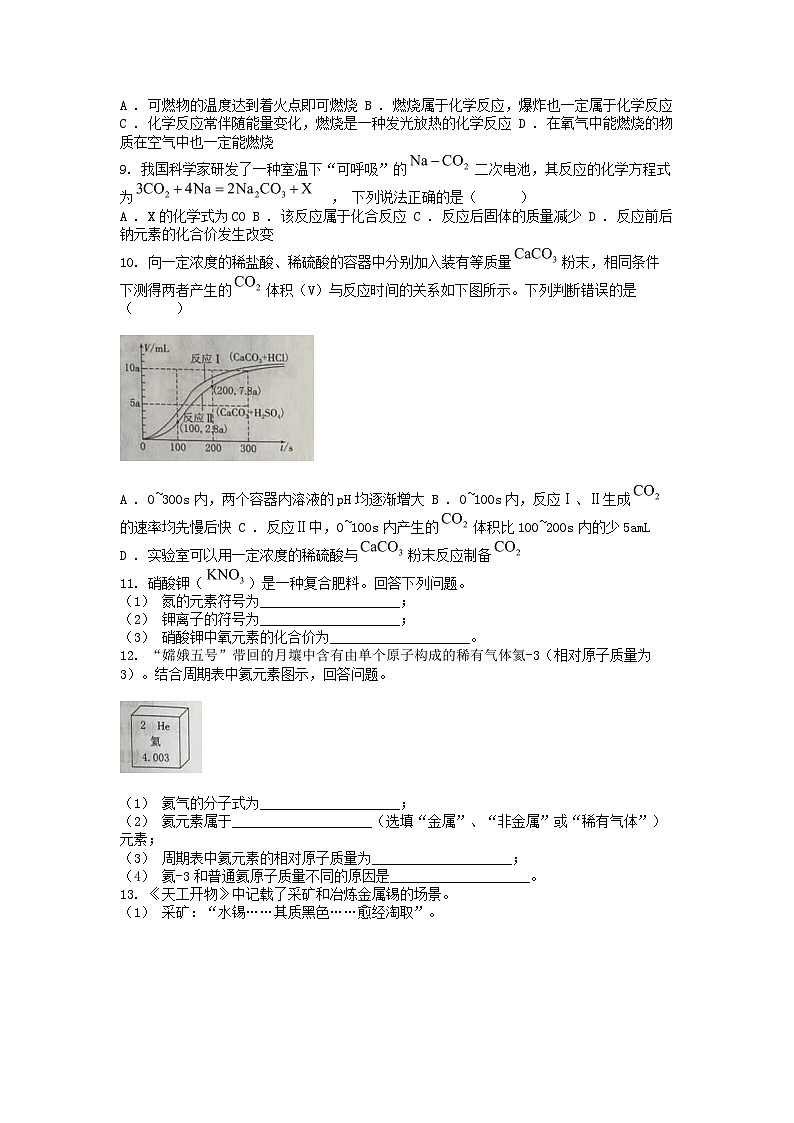 A . 可燃物的温度达到着火点即可燃烧 B . 燃烧属于化学反应,爆炸也一定属于化学反应
C . 化学反应常伴随能量变化,燃烧是一种发光放热的化学反应 D . 在氧气中能燃烧的物
质在空气中也一定能燃烧
9. 我国科学家研发了一种室温下“可呼吸”的 Na－CO₂ 二次电池,其反应的化学方程式
为 3CO₂＋4Na＝2Na₂CO₃＋X , 下列说法正确的是( )
A . X的化学式为CO B . 该反应属于化合反应 C . 反应后固体的质量减少 D . 反应前后
钠元素的化合价发生改变
10. 向一定浓度的稀盐酸、稀硫酸的容器中分别加入装有等质量 CaCO₃ 粉末,相同条件
下测得两者产生的 CO₂ 体积(V)与反应时间的关系如下图所示。下列判断错误的是
( )
V/mL
反应Ⅰ (CaCO₃+HCl)
10a
(200, 7.8a)
5a
(CaCO₃+H₂SO₄)
反应Ⅱ
(100, 2.8a)
0 100 200 300 t/s
A . 0~300s内,两个容器内溶液的pH均逐渐增大 B . 0~100s内,反应Ⅰ、Ⅱ生成 CO₂
的速率均先慢后快 C . 反应Ⅱ中,0~100s内产生的 CO₂ 体积比100~200s内的少5amL
D . 实验室可以用一定浓度的稀硫酸与 CaCO₃ 粉末反应制备 CO₂
11. 硝酸钾( KNO₃ )是一种复合肥料。回答下列问题。
(1) 氮的元素符号为____________________;
(2) 钾离子的符号为____________________;
(3) 硝酸钾中氧元素的化合价为____________________。
12. “嫦娥五号”带回的月壤中含有由单个原子构成的稀有气体氦-3(相对原子质量为
3)。结合周期表中氦元素图示,回答问题。
2 He
氦
4.003
(1) 氦气的分子式为____________________;
(2) 氦元素属于____________________(选填“金属”、“非金属”或“稀有气体”)
元素;
(3) 周期表中氦元素的相对原子质量为____________________;
(4) 氦-3和普通氦原子质量不同的原因是____________________。
13. 《天工开物》中记载了采矿和冶炼金属锡的场景。
(1) 采矿:“水锡……其质黑色……愈经淘取”。